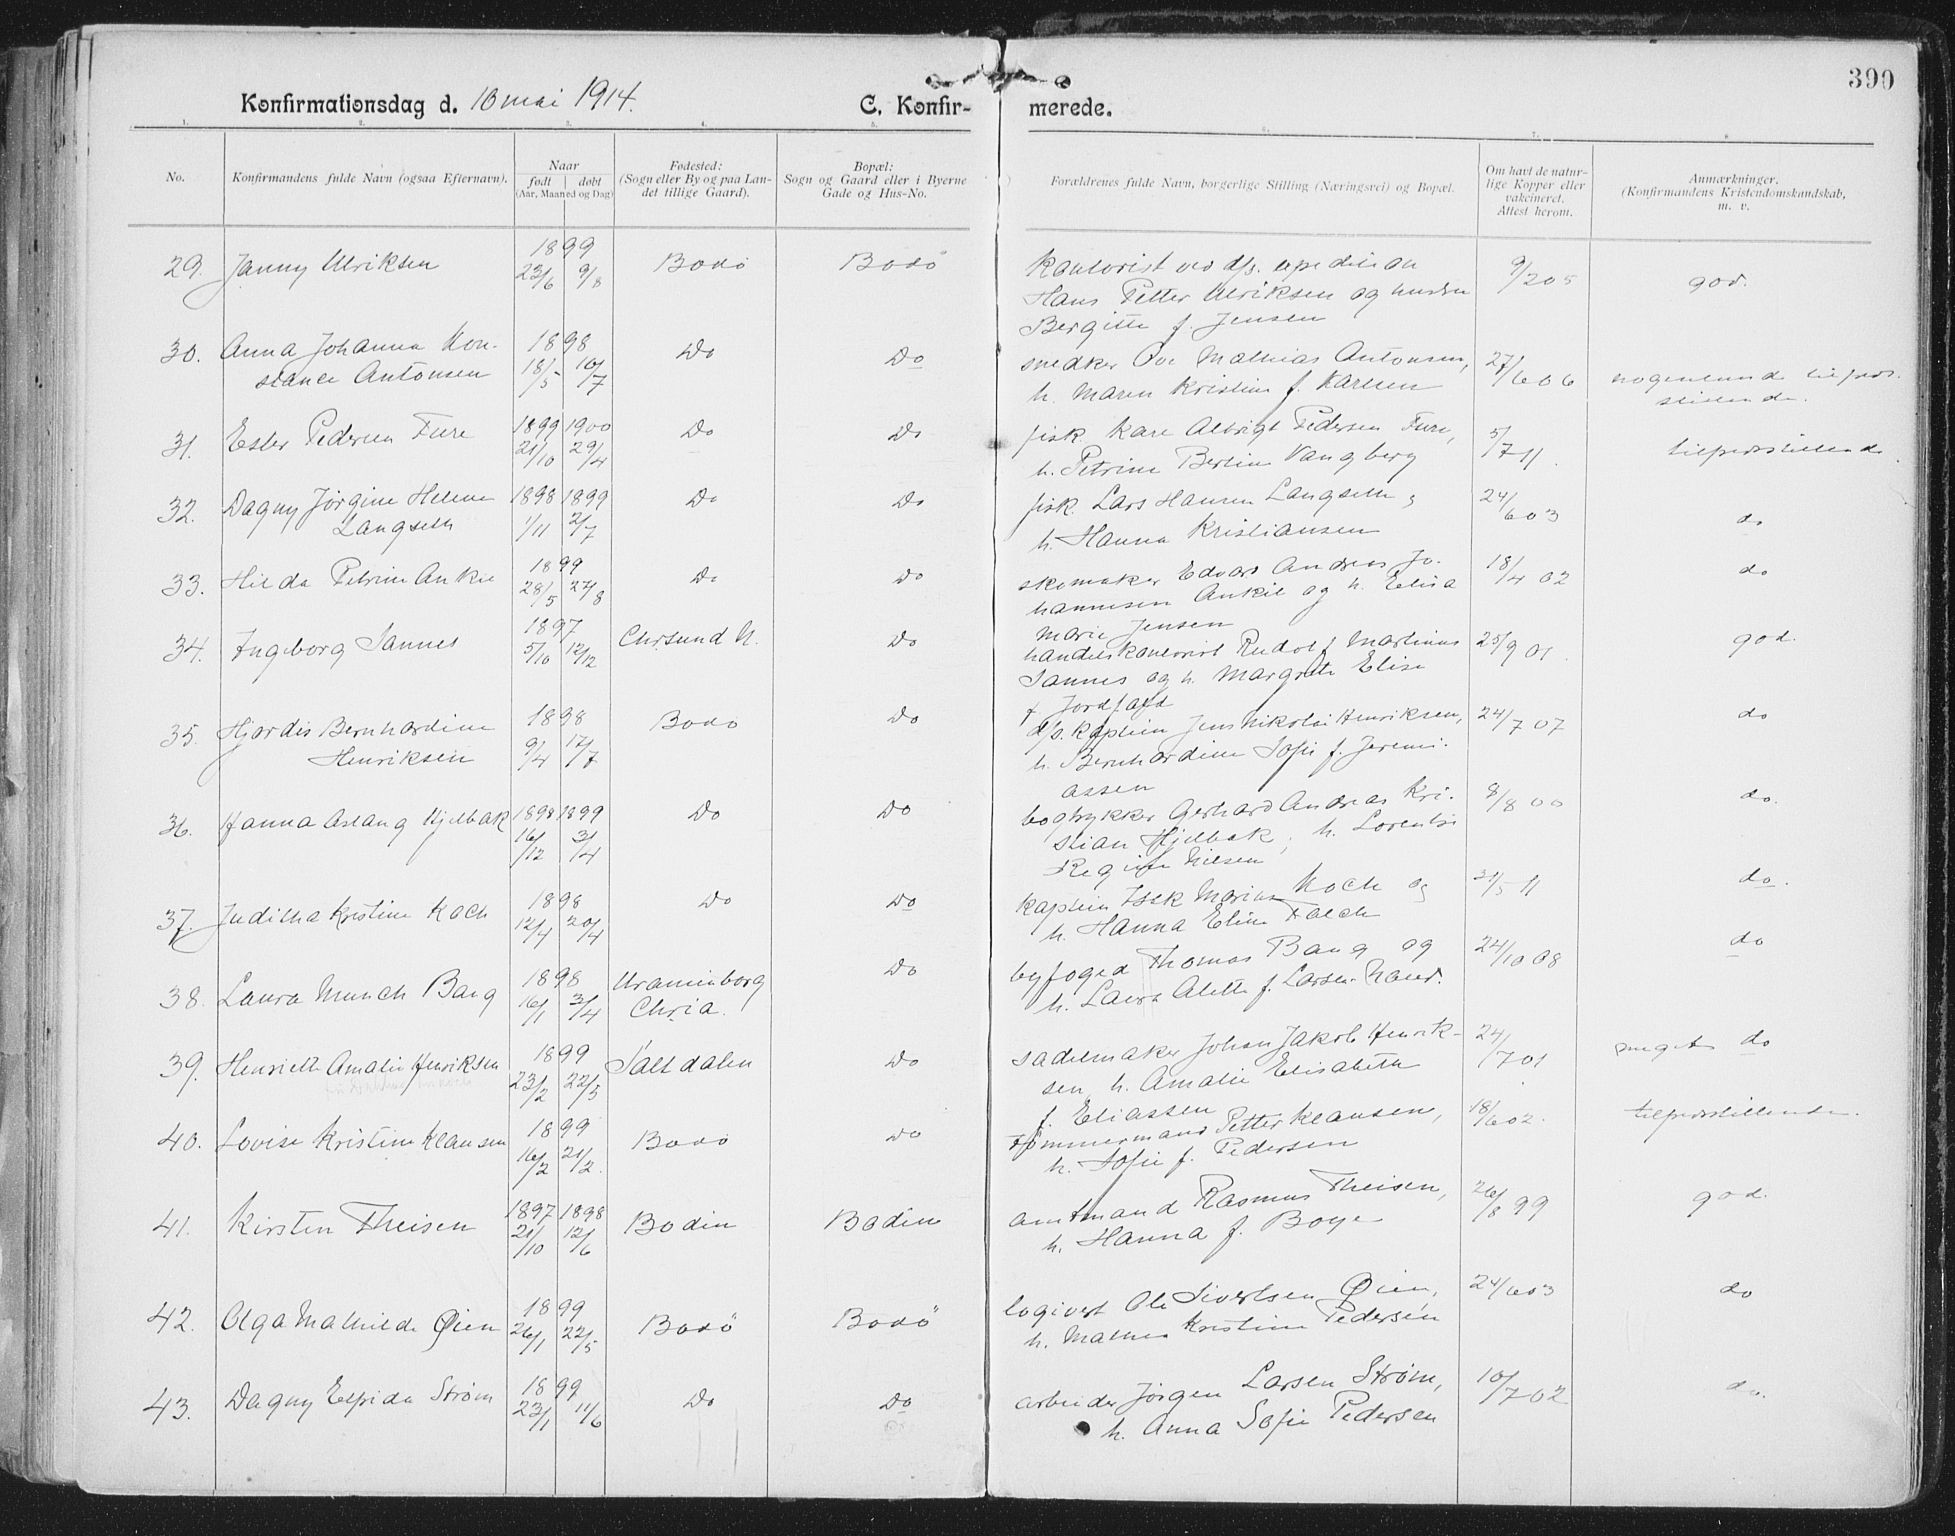 390
Konfirmationsdag d. 10 mai 1914.
C. Konfir-
merede.
1. 2. 3. 4. 5. 6. 7. 8.
No.
Konfirmandens fulde Navn (ogsaa Efternavn).
Naar
født
døbt
(Aar, Maaned og Dag)
Fødested:
(Sogn eller By og paa Lan-
det tillige Gaard).
Bopæl:
Sogn og Gaard eller i Byerne
Gade og Hus-No.
Forældrenes fulde Navn, borgerlige Stilling (Næringsvei) og Bopæl.
Om havt de natur-
lige Kopper eller
vakcineret.
Attest herom.
Anmærkninger.
(Konfirmandens Kristendomskundskab,
m. v.
29. Janny Ulriksen 1899 23/6 9/8 Bodö Bodö
kontorist ved d/s. expedition
Hans Petter Ulriksen og hustru
Bergitte f. Jensen
9/2 05 god.
30. Anna Johanna Kon-
stance Antonsen 1898 18/5 10/7 Do Do
snedker Ove Mathias Antonsen,
h. Maren Kristine f. Karlsen
27/6 06 nogenlunde tilfreds-
stillende.
31. Ester Pedersen Fure 1899 1900 21/10 29/4 Do Do
fisk. Kare Albrigt Pedersen Fure,
h. Petrine Bertine Vangberg
5/7 11. tilfredsstillende
32. Dagny Jörgine Helene
Langseth 1898 1899 1/11 2/7 Do Do
fisk. Lars Hansen Langseth,
h. Hanna Kristiansen
24/6 03 do
33. Hilda Petrine Ankie 1899 28/5 27/8 Do Do
skomaker Edvard Andreas Jo-
hannesen Ankie og h. Elisa
Marie Jensen
18/4 02 do
34. Ingeborg Sannes 1897 5/10 12/12 Chrsund N. Do
handelskontorist Rudolf Martinus
Sannes og h. Margrete Elise
f. Jordfald
25/9 01. god.
35. Hjordis Bernhardine
Henriksen 1898 9/4 17/7 Bodö Do
d/s. kaptein Jens Nikolai Henriksen,
h. Bernhardine Sofie f. Jeremi-
assen
24/7 07 do
36. Hanna Aslaug Hjelbak 1898 1899 16/12 3/4 Do Do
bogtrykker Gerhard Andreas Kri-
stian Hjelbak, h. Lorentse
Regine Nilsen
8/8 00 do.
37. Juditha Kristine Koch 1898 12/4 20/4 Do Do
kaptein Isak Marius Koch og
h. Hanna Eline Falch
21/5 11 do.
38. Laura Munch Bang 1898 16/1 3/4 Uranienborg
Chria. Do
byfoged Thomas Bang og
h. Laura Alette f. Larsen-Naur.
24/10 08 do
39. Henriette Amalie Henriksen 1899 23/2 22/5 Saltdalen Do
sadelmaker Johan Jakob Henrik-
sen, h. Amalie Elisabeth
f. Eliassen
24/7 01 meget do
40. Lovise Kristine Klausen 1899 16/2 21/2. Bodö Do
tömmermand Petter Klausen,
h. Sofie f. Pedersen
18/6 02. tilfredsstillende.
41. Kirsten Theisen 1897 1898 21/10 12/6 Bodin Bodin
amtmand Rasmus Theisen,
h. Hanna f. Boye
26/8 99 god.
42. Olga Mathilde Øien 1899 26/1 22/5 Bodö Bodö
logivert Ole Sivertsen Øien,
h. Kristine Pedersen
24/6 03 do
43. Dagny Elfrida Strøm 1899 23/1 11/6 Do Do
arbeider Jørgen Larsen Strøm,
h. Anna Sofie Pedersen
10/7 02 do.